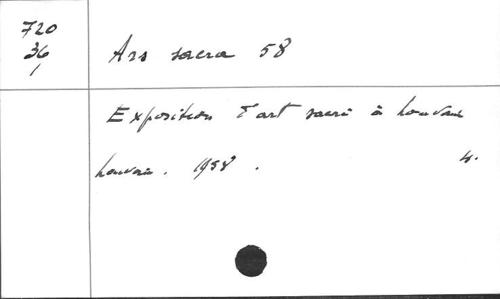 720
36
1
Ars sacra 58
Exposition d'art sacré à Louvain
Louvain. 1958. 4.